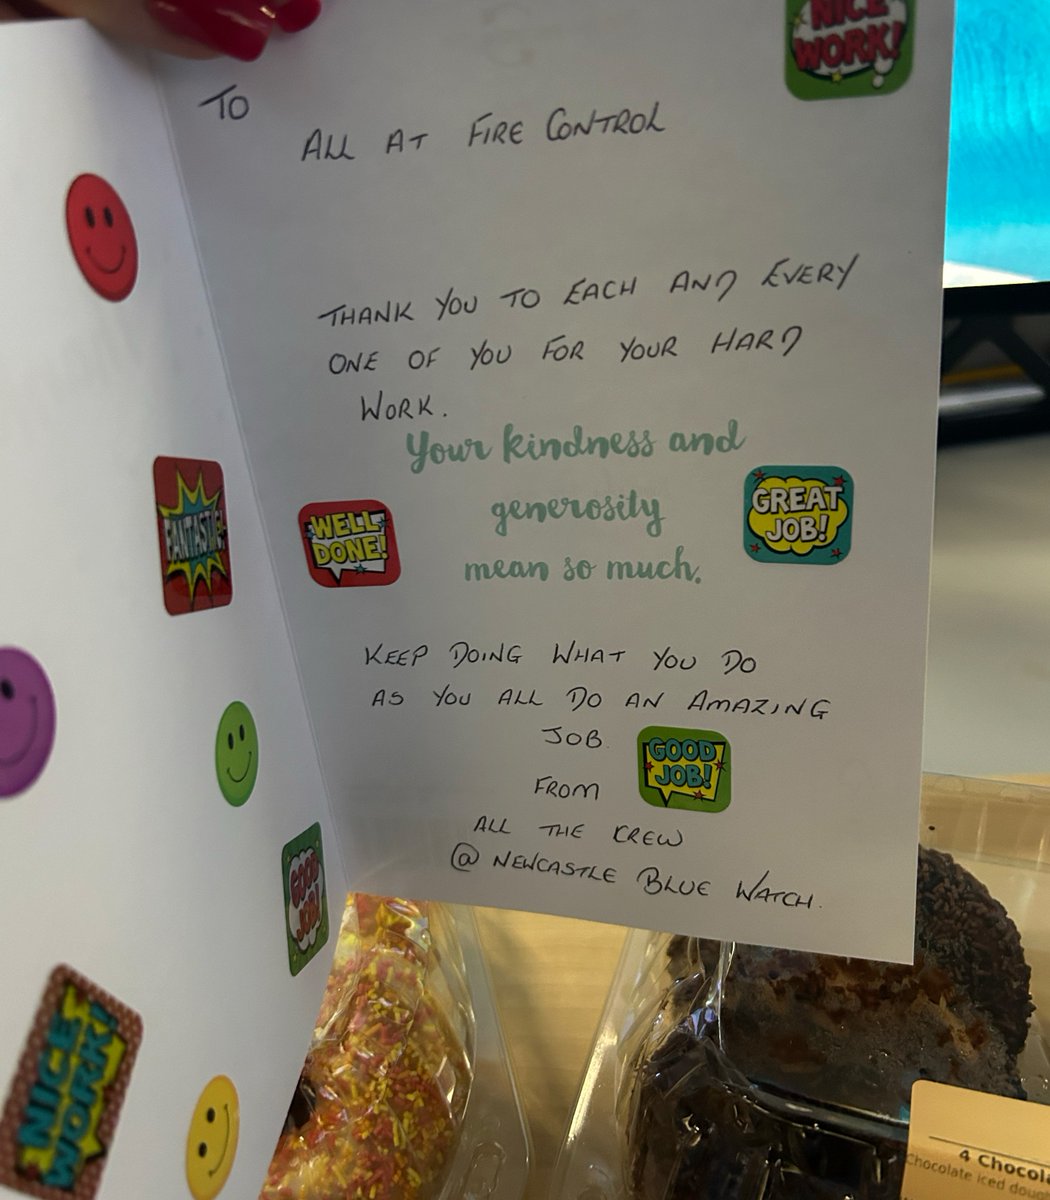 NICE
WORK!
TO
ALL AT FIRE CONTROL
THANK YOU TO EACH AND EVERY
ONE OF YOU FOR YOUR HARD
WORK.
Your kindness and
generosity
mean so much.
WELL
DONE!
GREAT
JOB!
FANTASTIC!
KEEP DOING WHAT YOU DO
AS YOU ALL DO AN AMAZING
JOB.
GOOD
JOB!
FROM
ALL THE CREW
@ NEWCASTLE BLUE WATCH.
GOOD
JOB!
NICE
WORK!
4 Chocola
Chocolate iced dou